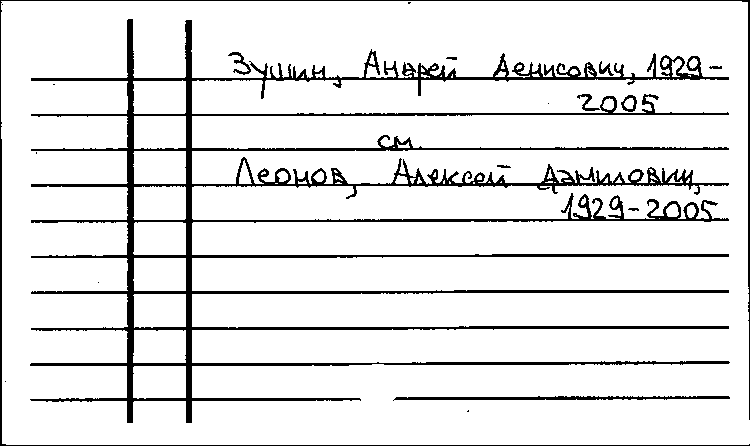 Зушин, Андрей Денисович, 1929-
2005
см.
Леонов, Алексей Данилович,
1929-2005